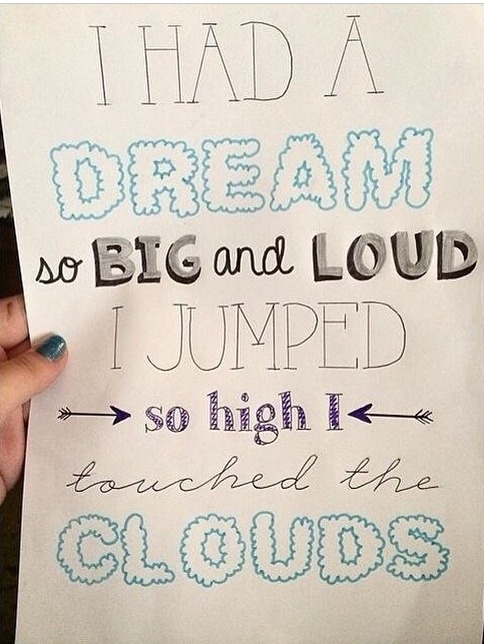 I HAD A
DREAM
so BIG and LOUD
I JUMPED
so high I
touched the
CLOUDS